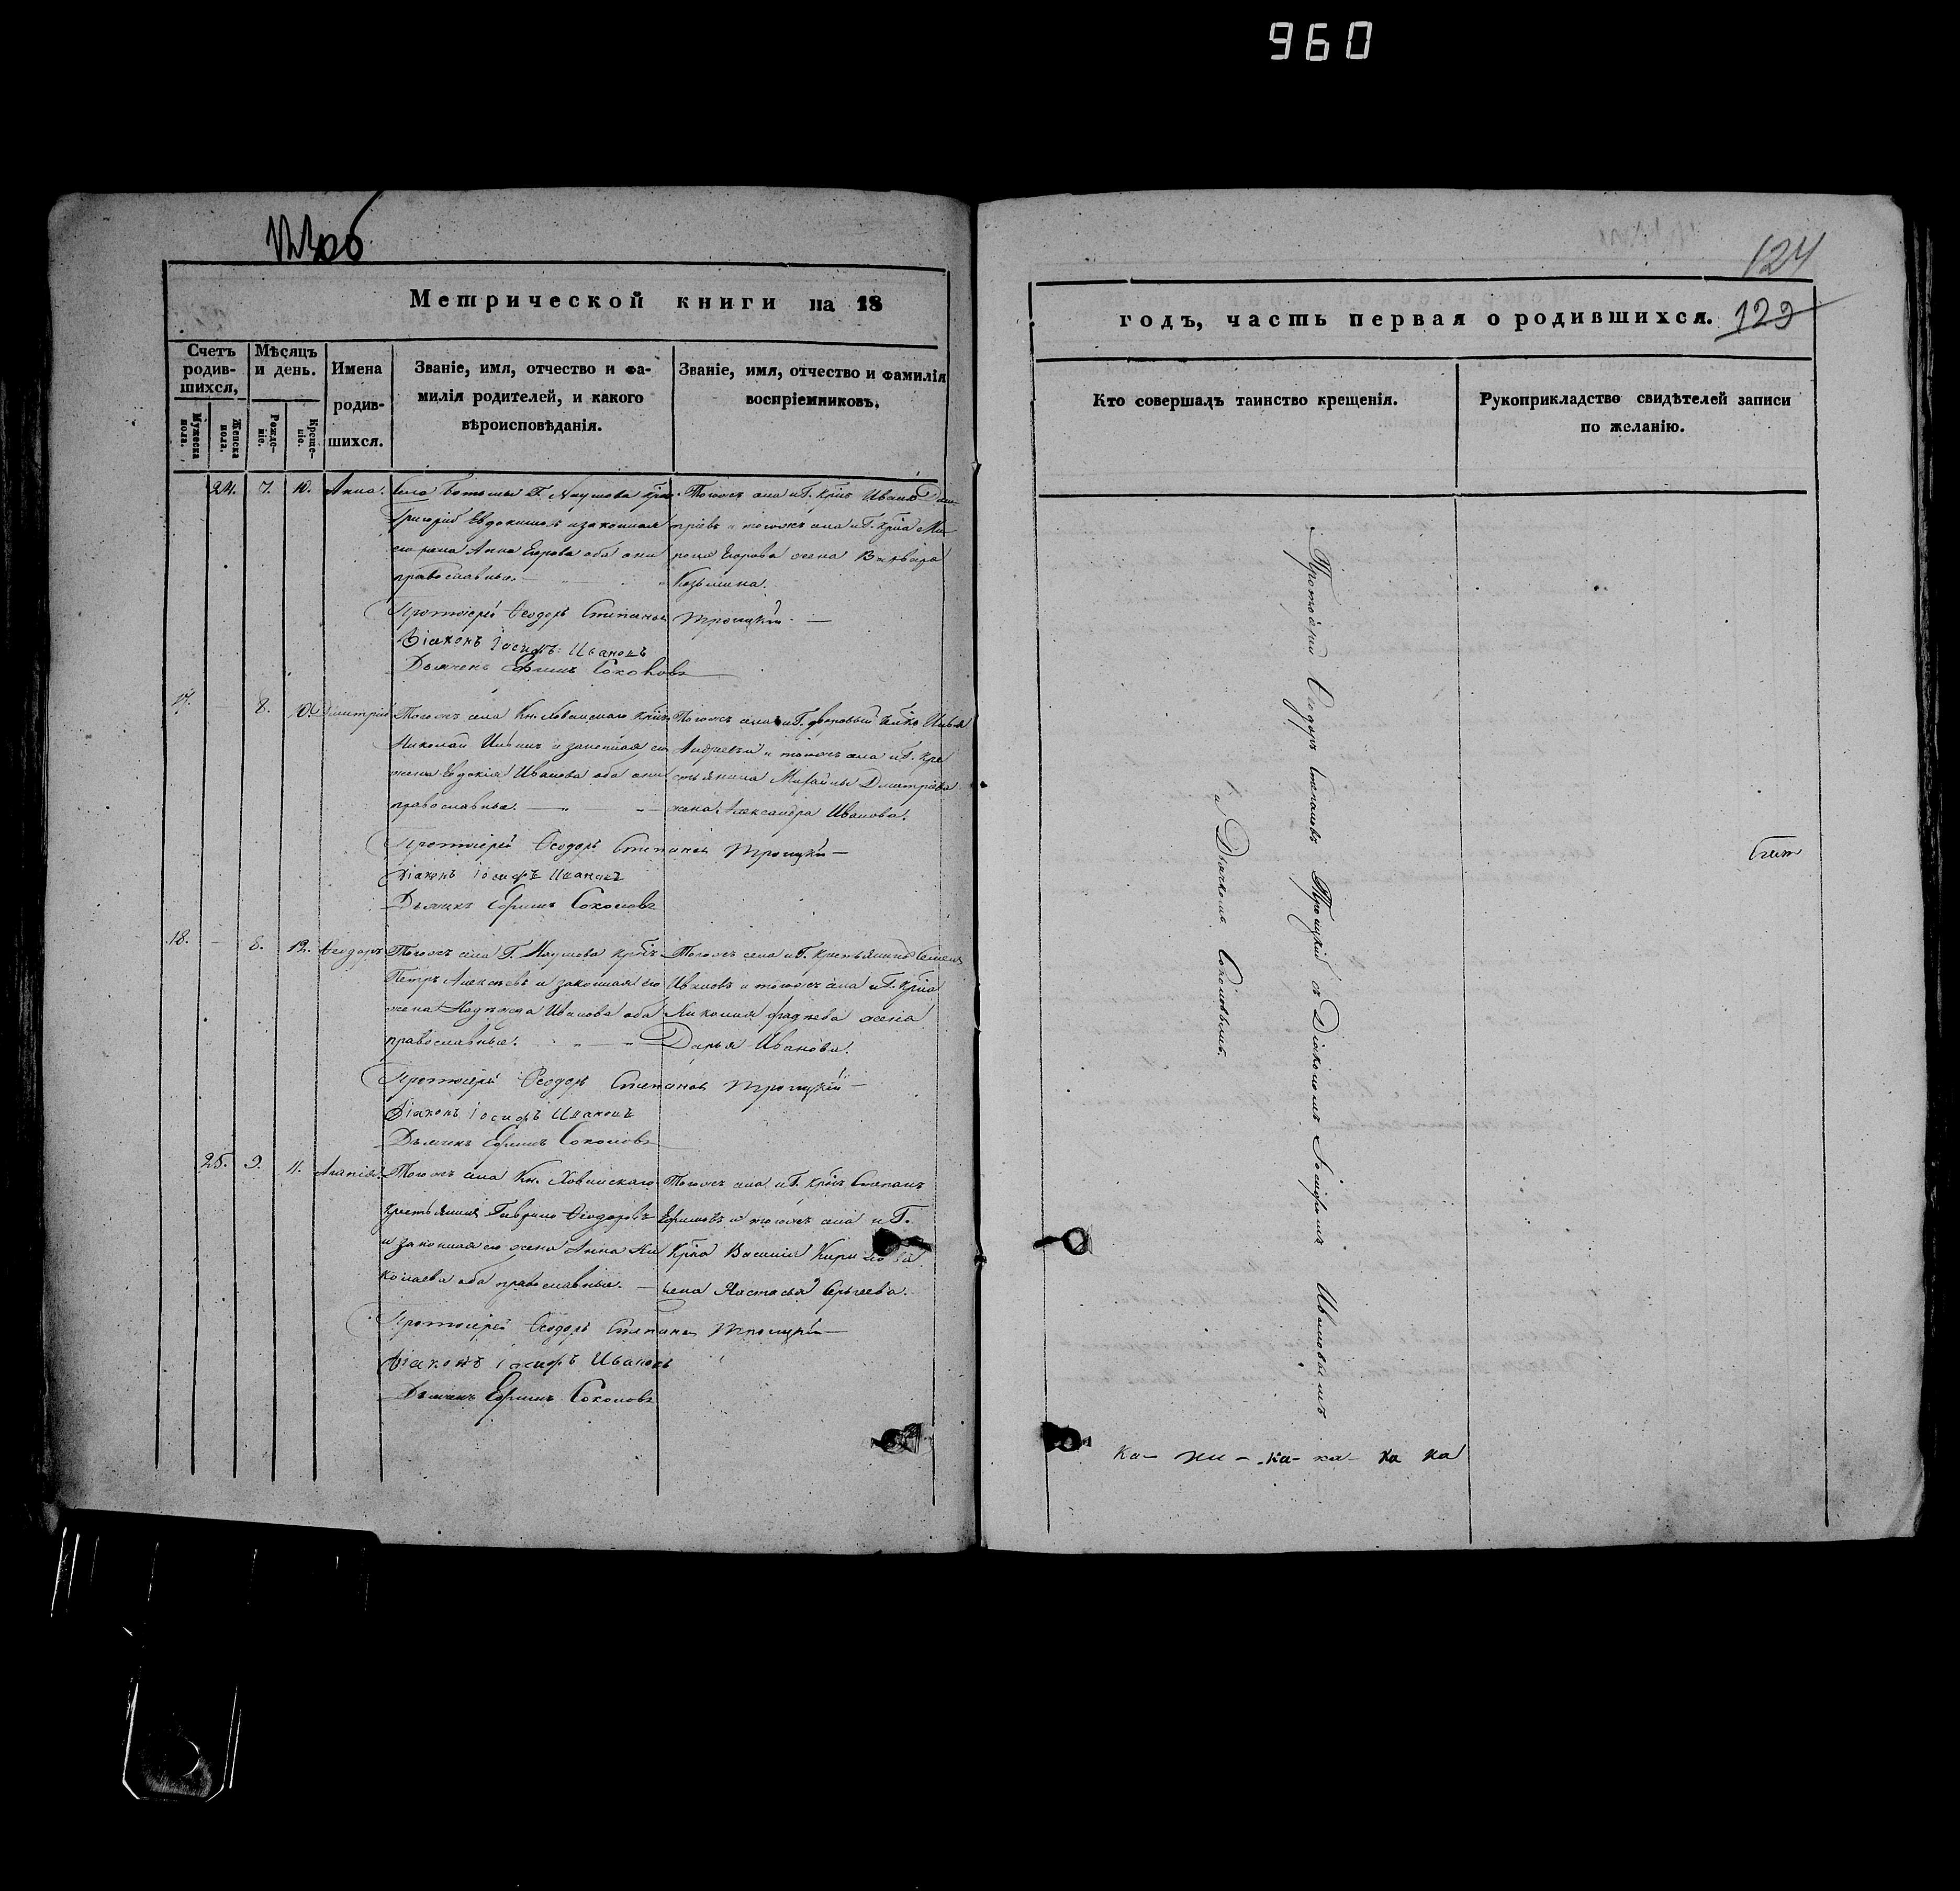 960
Метрической книги на 18
Счетъ родившихся,
Мужеска пола.
Женска пола.
Мѣсяцъ и день.
Рожденіе.
Крещеніе.
Имена родившихся.
Званіе, имя, отчество и фамилія родителей, и какого вѣроисповѣданія.
Званіе, имя, отчество и фамилія воспріемниковъ.
24. 7. 10. Анна.
Села Г. Наумова
Григорій Евдокимовъ и законная
его жена Анна Егорова оба они
православные.
Тогожъ села и Г. Иванъ Дми-
тріевъ и тогожъ села и Г. Ми-
рона Егорова жена Варвара
Козьмина.
Протоіерей Ѳеодоръ Степановъ Троицкій
Діаконъ Іосифъ Ивановъ
Дьячекъ Ефимъ Соколовъ
17. 8. 10. Димитрій
Тогожъ села Кн. Хованскаго
Николай Ильинъ и законная его
жена Евдокія Иванова оба они
православные.
Тогожъ села и Г. дворовый Илья
Андреевъ и тогожъ села и Г. кре
стьянина Михайлы Дмитріева
жена Александра Иванова.
Протоіерей Ѳеодоръ Степановъ Троицкій
Діаконъ Іосифъ Ивановъ
Дьячекъ Ефимъ Соколовъ
18. 8. 12. Ѳеодоръ
Тогожъ села Г. Наумова
Петръ Алексѣевъ и законная его
жена Надежда Иванова оба
православные.
Тогожъ села и Г. крестьянинъ Семенъ
Ивановъ и тогожъ села и Г.
жена
Дарья Иванова.
Протоіерей Ѳеодоръ Степановъ Троицкій
Діаконъ Іосифъ Ивановъ
Дьячекъ Ефимъ Соколовъ
25. 9. 11. Агапія.
Тогожъ села Кн. Хованскаго
крестьянинъ Гаврило Ѳеодоровъ
и законная его жена Анна Ни
колаева оба православные.
Тогожъ села и Г. Степанъ
Ефимовъ и тогожъ села и Г.
Василія Кирилова
жена Настасья Сергеева.
Протоіерей Ѳеодоръ Степановъ Троицкій
Діаконъ Іосифъ Ивановъ
Дьячекъ Ефимъ Соколовъ
124
годъ, часть первая о родившихся.
123
Кто совершалъ таинство крещенія.
Рукоприкладство свидѣтелей записи по желанію.
Протоіерей Ѳеодоръ Степановъ Троицкій съ Діакономъ Іосифомъ Ивановымъ
и Дьячкомъ Соколовымъ.
ка- ни- ка- ка- ка ка